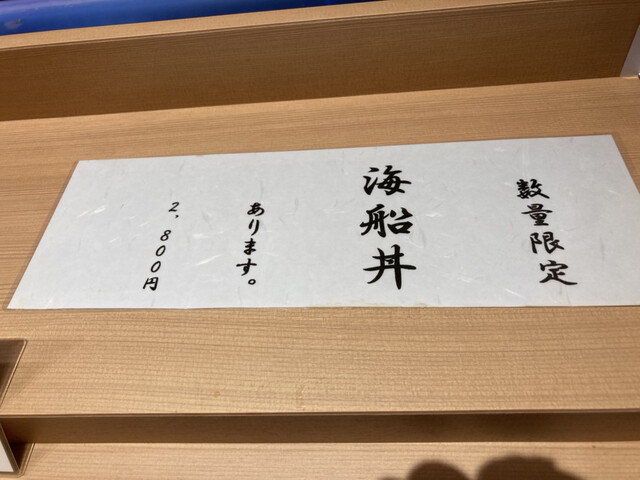 数量限定
海船丼
あります。
2,800円